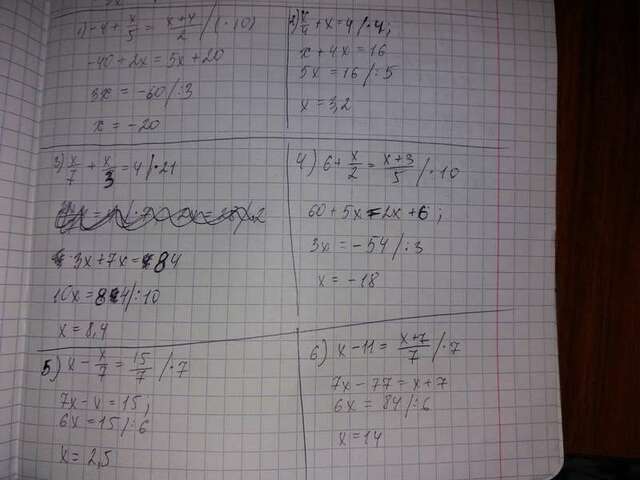 1) -4 + x/5 = (x+4)/2 /(·10)
-40 + 2x = 5x + 20
3x = -60 /:3
x = -20
2) x/4 + x = 4 /·4;
x + 4x = 16
5x = 16 /:5
x = 3,2
3) x/7 + x/3 = 4 |·21
3x + 7x = 84
10x = 84 /:10
x = 8,4
4) 6 + x/2 = (x+3)/5 /·10
60 + 5x = 2x + 6;
3x = -54 /:3
x = -18
5) x - x/7 = 15/7 /·7
7x - x = 15
6x = 15 /:6
x = 2,5
6) x - 11 = (x+7)/7 /·7
7x - 77 = x + 7
6x = 84 /:6
x = 14